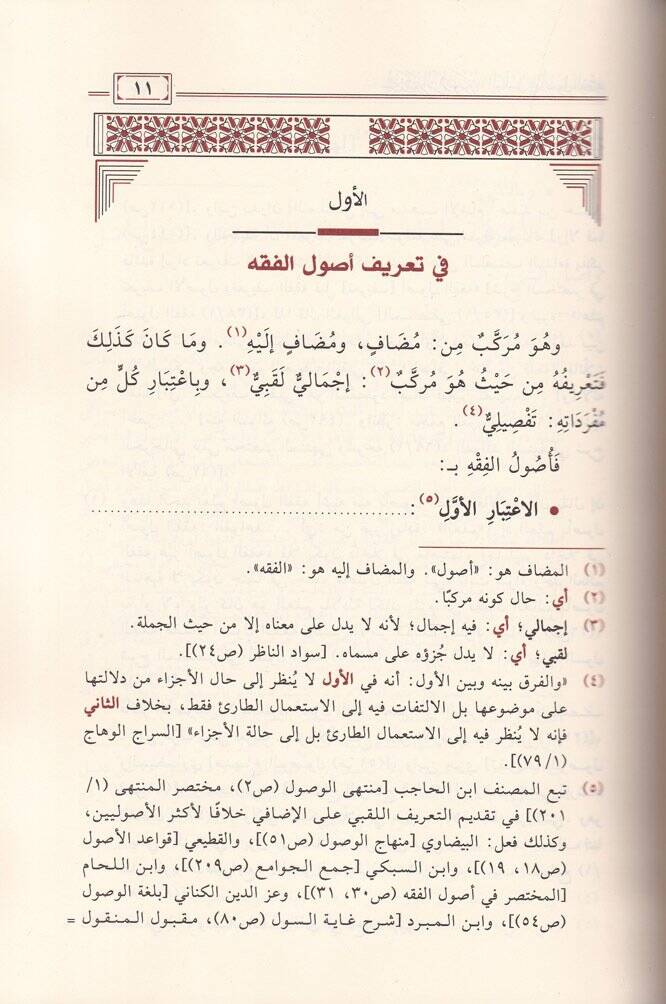 ١١
الأول
في تعريف أصول الفقه
وهُوَ مُرَكَّبٌ مِن: مُضَافٍ، ومُضَافٍ إلَيْهِ(١). ومَا كَانَ كَذَلِكَ
فَتَعْرِيفُهُ مِن حَيْثُ هُوَ مُركَّبٌ(٢): إجْمَاليٌّ لَقَبِيٌّ(٣)، وبِاعْتِبَارِ كُلٍّ مِن
مُفْرَدَاتِهِ: تَفْصِيلِيٌّ(٤).
فَأُصُولُ الفِقْهِ بـ:
• الاعْتِبَارِ الأوَّلِ(٥): ........................................
(١) المضاف هو: «أصول». والمضاف إليه هو: «الفقه».
(٢) أي: حال كونه مركبًا.
(٣) إجمالي؛ أي: فيه إجمال؛ لأنه لا يدل على معناه إلا من حيث الجملة.
لقبي؛ أي: لا يدل جُزؤه على مسماه. [سواد الناظر (ص٢٤)].
(٤) «والفرق بينه وبين الأول: أنه في الأول لا يُنظر إلى حال الأجزاء من دلالتها
على موضوعها بل الالتفات فيه إلى الاستعمال الطارئ فقط، بخلاف الثاني
فإنه لا يُنظر فيه إلى الاستعمال الطارئ بل إلى حالة الأجزاء» [السراج الوهاج
(٧٩/١)].
(٥) تبع المصنف ابن الحاجب [منتهى الوصول (ص٢)، مختصر المنتهى (١/
٢٠١)] في تقديم التعريف اللقبي على الإضافي خلافًا لأكثر الأصوليين،
وكذلك فعل: البيضاوي [منهاج الوصول (ص٥١)]، والقطيعي [قواعد الأصول
(ص١٨، ١٩)]، وابن السبكي [جمع الجوامع (ص٢٠٩)]، وابن اللحام
[المختصر في أصول الفقه (ص٣٠، ٣١)]، وعز الدين الكناني [بلغة الوصول
(ص٥٤)]، وابن المبرد [شرح غاية السول (ص٨٠)، مقبول المنقول =